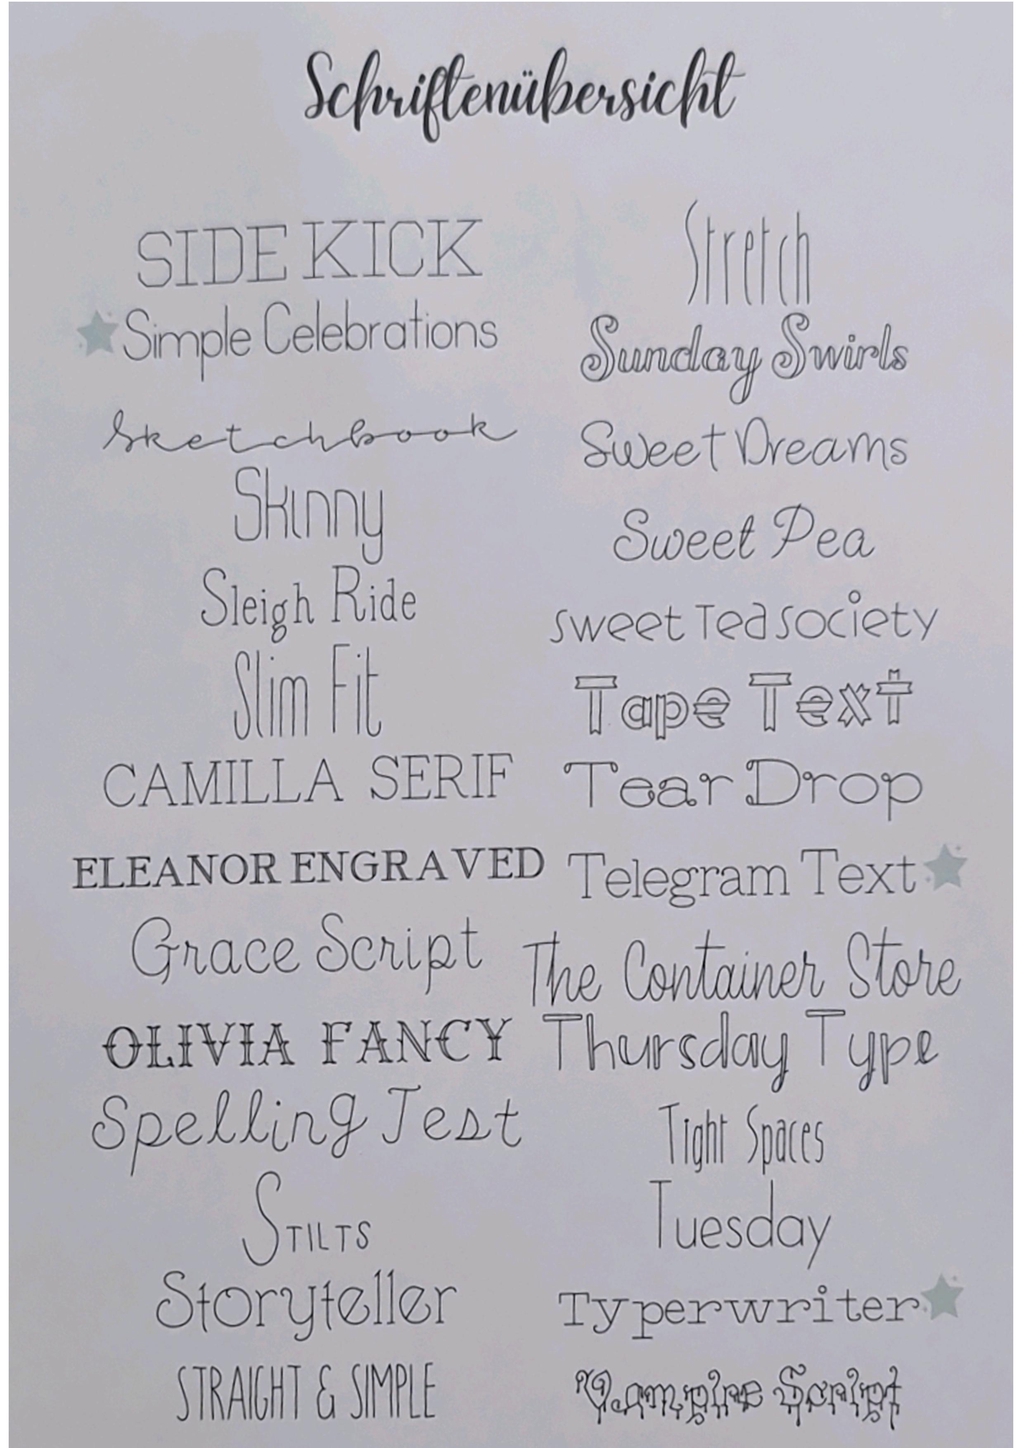 Schriftenübersicht
SIDE KICK
Simple Celebrations
Sketchbook
Skinny
Sleigh Ride
Slim Fit
CAMILLA SERIF
ELEANOR ENGRAVED
Grace Script
OLIVIA FANCY
Spelling Test
STILTS
Storyteller
STRAIGHT & SIMPLE
Stretch
Sunday Swirls
Sweet Dreams
Sweet Pea
sweet Tea society
Tape Text
Tear Drop
Telegram Text
The Container Store
Thursday Type
Tight Spaces
Tuesday
Typerwriter
Vampire Script